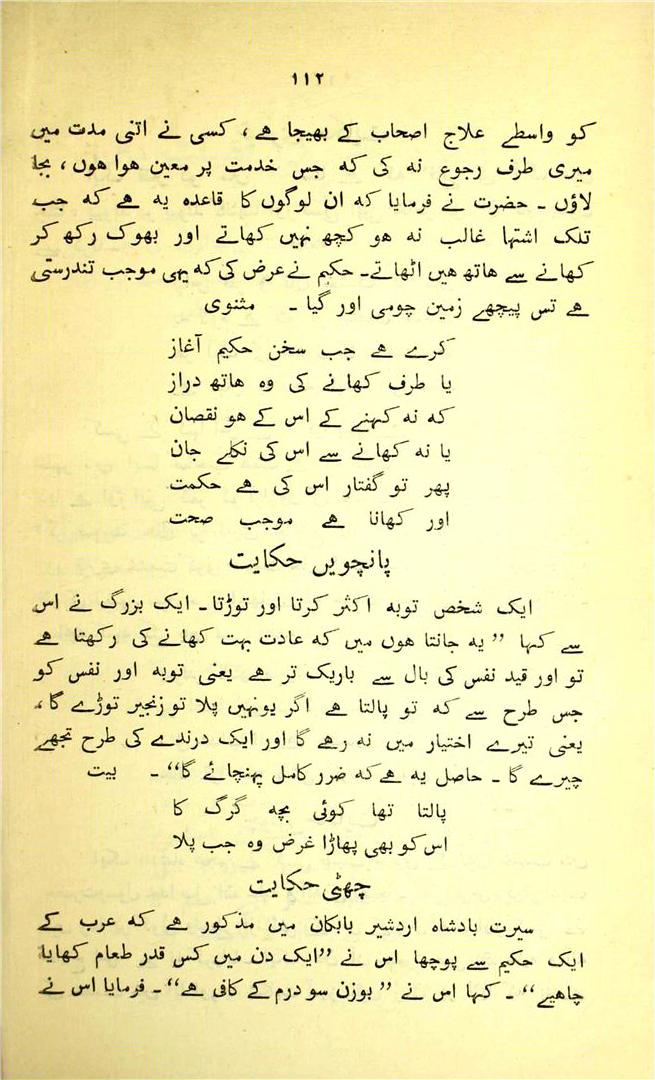 ۱۱۲
کو واسطے علاج اصحاب کے بھیجا ہے ، کسی نے اتنی مدت میں
میری طرف رجوع نہ کی کہ جس خدمت پر معین ہوا ہوں ، بجا
لاؤں ۔ حضرت نے فرمایا کہ ان لوگوں کا قاعدہ یہ ہے کہ جب
تلک اشتہا غالب نہ ہو کچھ نہیں کھاتے اور بھوک رکھ کر
کھانے سے ہاتھ ہیں اٹھاتے۔ حکیم نے عرض کی کہ یہی موجب تندرستی
ہے تس پیچھے زمین چومی اور گیا ۔ مثنوی
کرے ہے جب سخن حکیم آغاز
یا طرف کھانے کی وہ ہاتھ دراز
کہ نہ کہنے کے اس کے ہو نقصان
یا نہ کھانے سے اس کی نکلے جان
پھر تو گفتار اس کی ہے حکمت
اور کھانا ہے موجب صحت
پانچویں حکایت
ایک شخص توبہ اکثر کرتا اور توڑتا۔ ایک بزرگ نے اس
سے کہا ” یہ جانتا ہوں میں کہ عادت بہت کھانے کی رکھتا ہے
تو اور قید نفس کی بال سے باریک تر ہے یعنی توبہ اور نفس کو
جس طرح سے کہ تو پالتا ہے اگر یونہیں پلا تو زنجیر توڑے گا ،
یعنی تیرے اختیار میں نہ رہے گا اور ایک درندے کی طرح تجھے
چیرے گا ۔ حاصل یہ ہے کہ ضرر کامل پہنچائے گا“ ۔ بیت
پالتا تھا کوئی بچہ گرگ کا
اس کو بھی پھاڑا غرض وہ جب پلا
چھٹی حکایت
سیرت بادشاہ اردشیر بابکان میں مذکور ہے کہ عرب کے
ایک حکیم سے پوچھا اس نے ”ایک دن میں کس قدر طعام کھایا
چاہیے“ ۔ کہا اس نے ” بوزن سو درم کے کافی ہے“ ۔ فرمایا اس نے